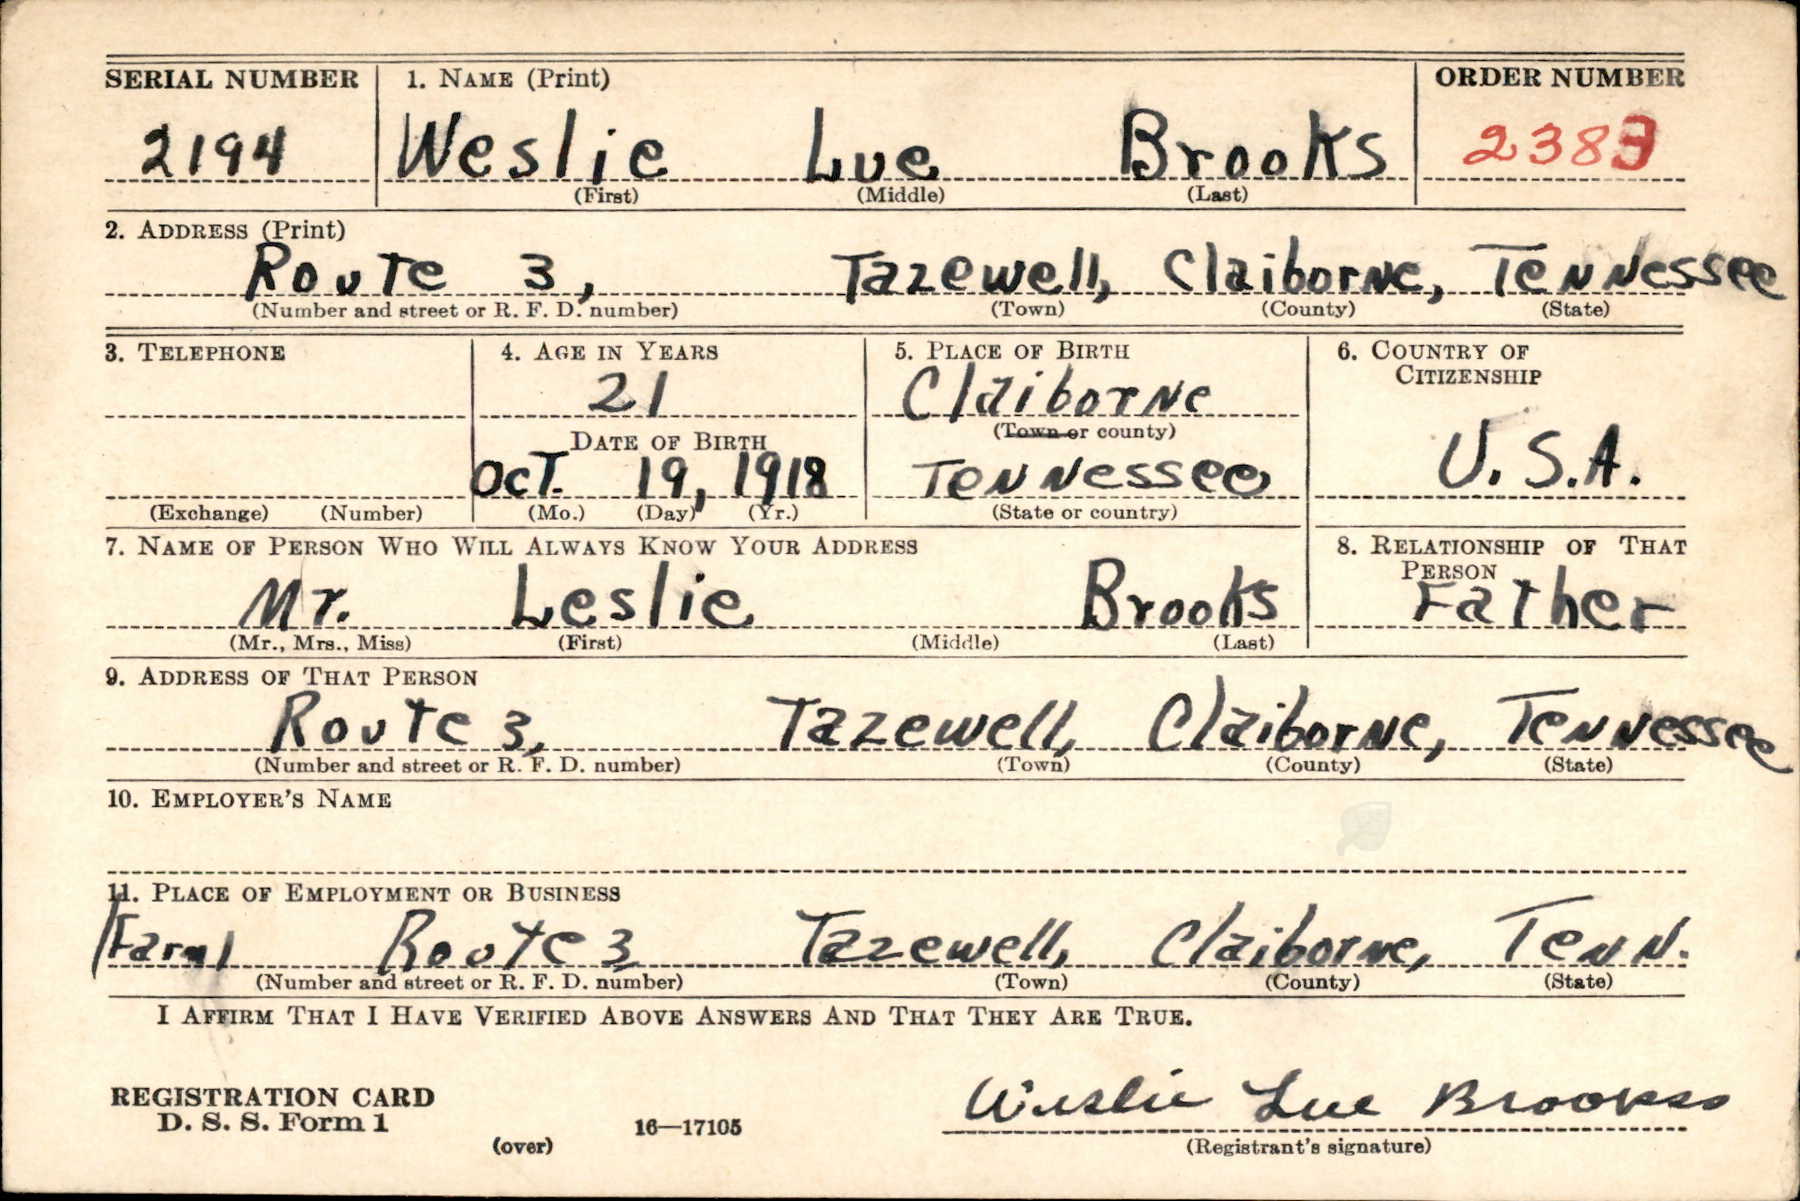 SERIAL NUMBER 1. NAME (Print) ORDER NUMBER
2194 Weslie Lue Brooks 2383
(First) (Middle) (Last)
2. ADDRESS (Print)
Route 3, Tazewell, Claiborne, Tennessee
(Number and street or R. F. D. number) (Town) (County) (State)
3. TELEPHONE 4. AGE IN YEARS 5. PLACE OF BIRTH 6. COUNTRY OF
CITIZENSHIP
21 Claiborne
(Town or county)
DATE OF BIRTH
Oct. 19, 1918 Tennessee U.S.A.
(Exchange) (Number) (Mo.) (Day) (Yr.) (State or country)
7. NAME OF PERSON WHO WILL ALWAYS KNOW YOUR ADDRESS 8. RELATIONSHIP OF THAT
PERSON
Mr. Leslie Brooks Father
(Mr., Mrs., Miss) (First) (Middle) (Last)
9. ADDRESS OF THAT PERSON
Route 3, Tazewell, Claiborne, Tennessee
(Number and street or R. F. D. number) (Town) (County) (State)
10. EMPLOYER'S NAME
11. PLACE OF EMPLOYMENT OR BUSINESS
(Farm) Route 3, Tazewell, Claiborne, Tenn.
(Number and street or R. F. D. number) (Town) (County) (State)
I AFFIRM THAT I HAVE VERIFIED ABOVE ANSWERS AND THAT THEY ARE TRUE.
REGISTRATION CARD
D. S. S. Form 1
(over) 16—17105
Weslie Lue Brooks
(Registrant's signature)